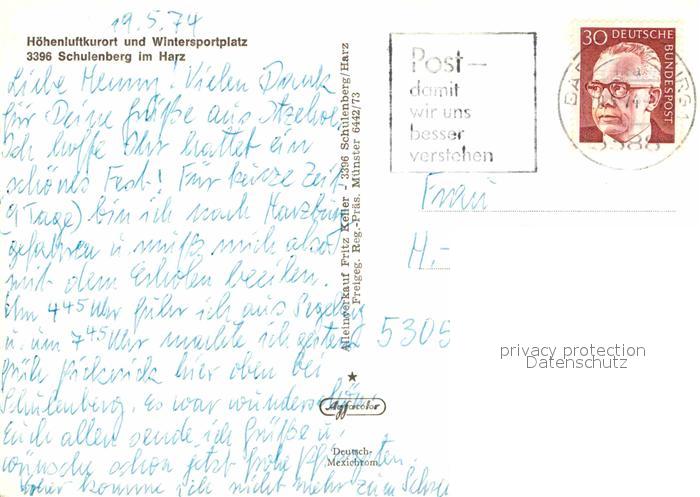 19.5.74
Höhenluftkurort und Wintersportplatz
3396 Schulenberg im Harz
Liebe Henny! Vielen Dank
für Deine Grüße aus Itzehoe.
Ich hoffe Ihr hattet ein
schönes Fest! Für kurze Zeit
(9 Tage) bin ich nach Harzburg
gefahren u. muß mich also
mit dem Erholen beeilen.
Um 4 45 Uhr fuhr ich aus
u. um 7 45 Uhr machte ich gestern
früh hier oben bei
Schulenberg. Es war wunderschön.
Euch allen sende ich Grüße u.
wünsche schon jetzt frohe Pfingsten.
komme ich nicht mehr zum
Alleinverkauf Fritz Keller - 3396 Schulenberg/Harz
Freigeg. Reg.-Präs. Münster 6442/73
Agfacolor
Deutsch-
Mexichrom
Post—
damit
wir uns
besser
verstehen
30 DEUTSCHE
BUNDESPOST
3388
Frau
H.-
5305
privacy protection
Datenschutz